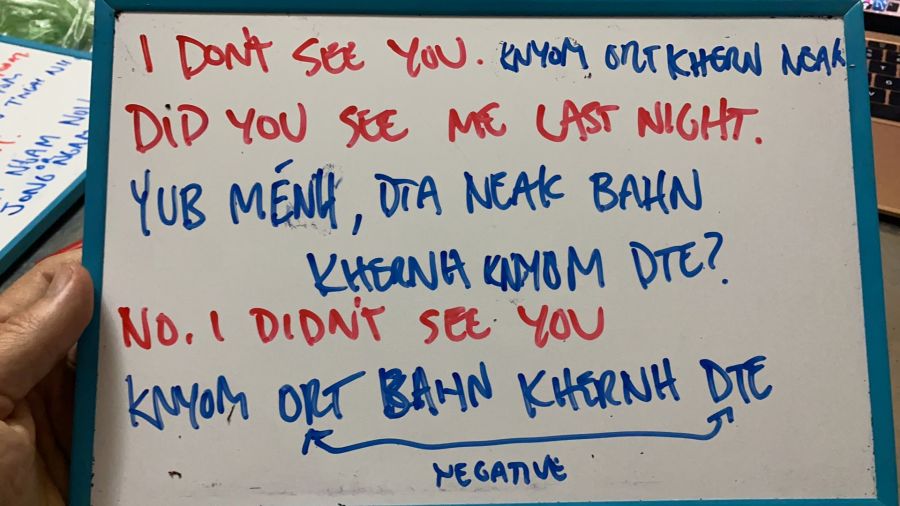 I DON'T SEE YOU. KNYOM ORT KHERN NEAK
DID YOU SEE ME LAST NIGHT.
YUB MÉNH, DTA NEAK BAHN
KHERNH KNYOM DTE?
NO. I DIDN'T SEE YOU
KNYOM ORT BAHN KHERNH DTE
NEGATIVE
NGAM NOW
OR
JONG NGAM